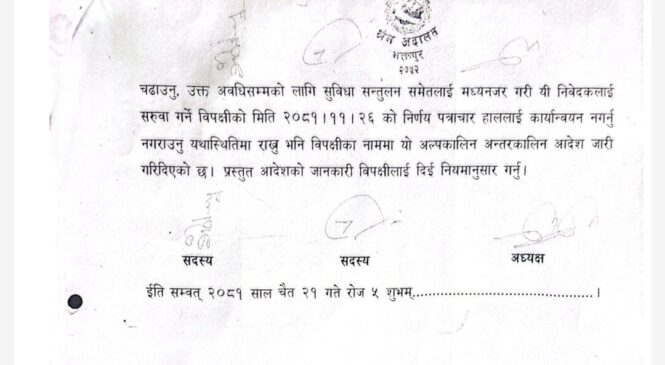 श्रम अदालत
भक्तपुर
२०५२
चढाउनु, उक्त अवधिसम्मको लागि सुविधा सन्तुलन समेतलाई मध्यनजर गरी यी निवेदकलाई
सरुवा गर्ने विपक्षीको मिति २०८१।११।२६ को निर्णय पत्राचार हाललाई कार्यान्वयन नगर्नु
नगराउनु यथास्थितिमा राख्नु भनि विपक्षीका नाममा यो अल्पकालिन अन्तरकालिन आदेश जारी
गरिदिएको छ। प्रस्तुत आदेशको जानकारी विपक्षीलाई दिई नियमानुसार गर्नु।
सदस्य सदस्य अध्यक्ष
ईति सम्वत् २०८१ साल चैत २१ गते रोज ५ शुभम्..........................................।